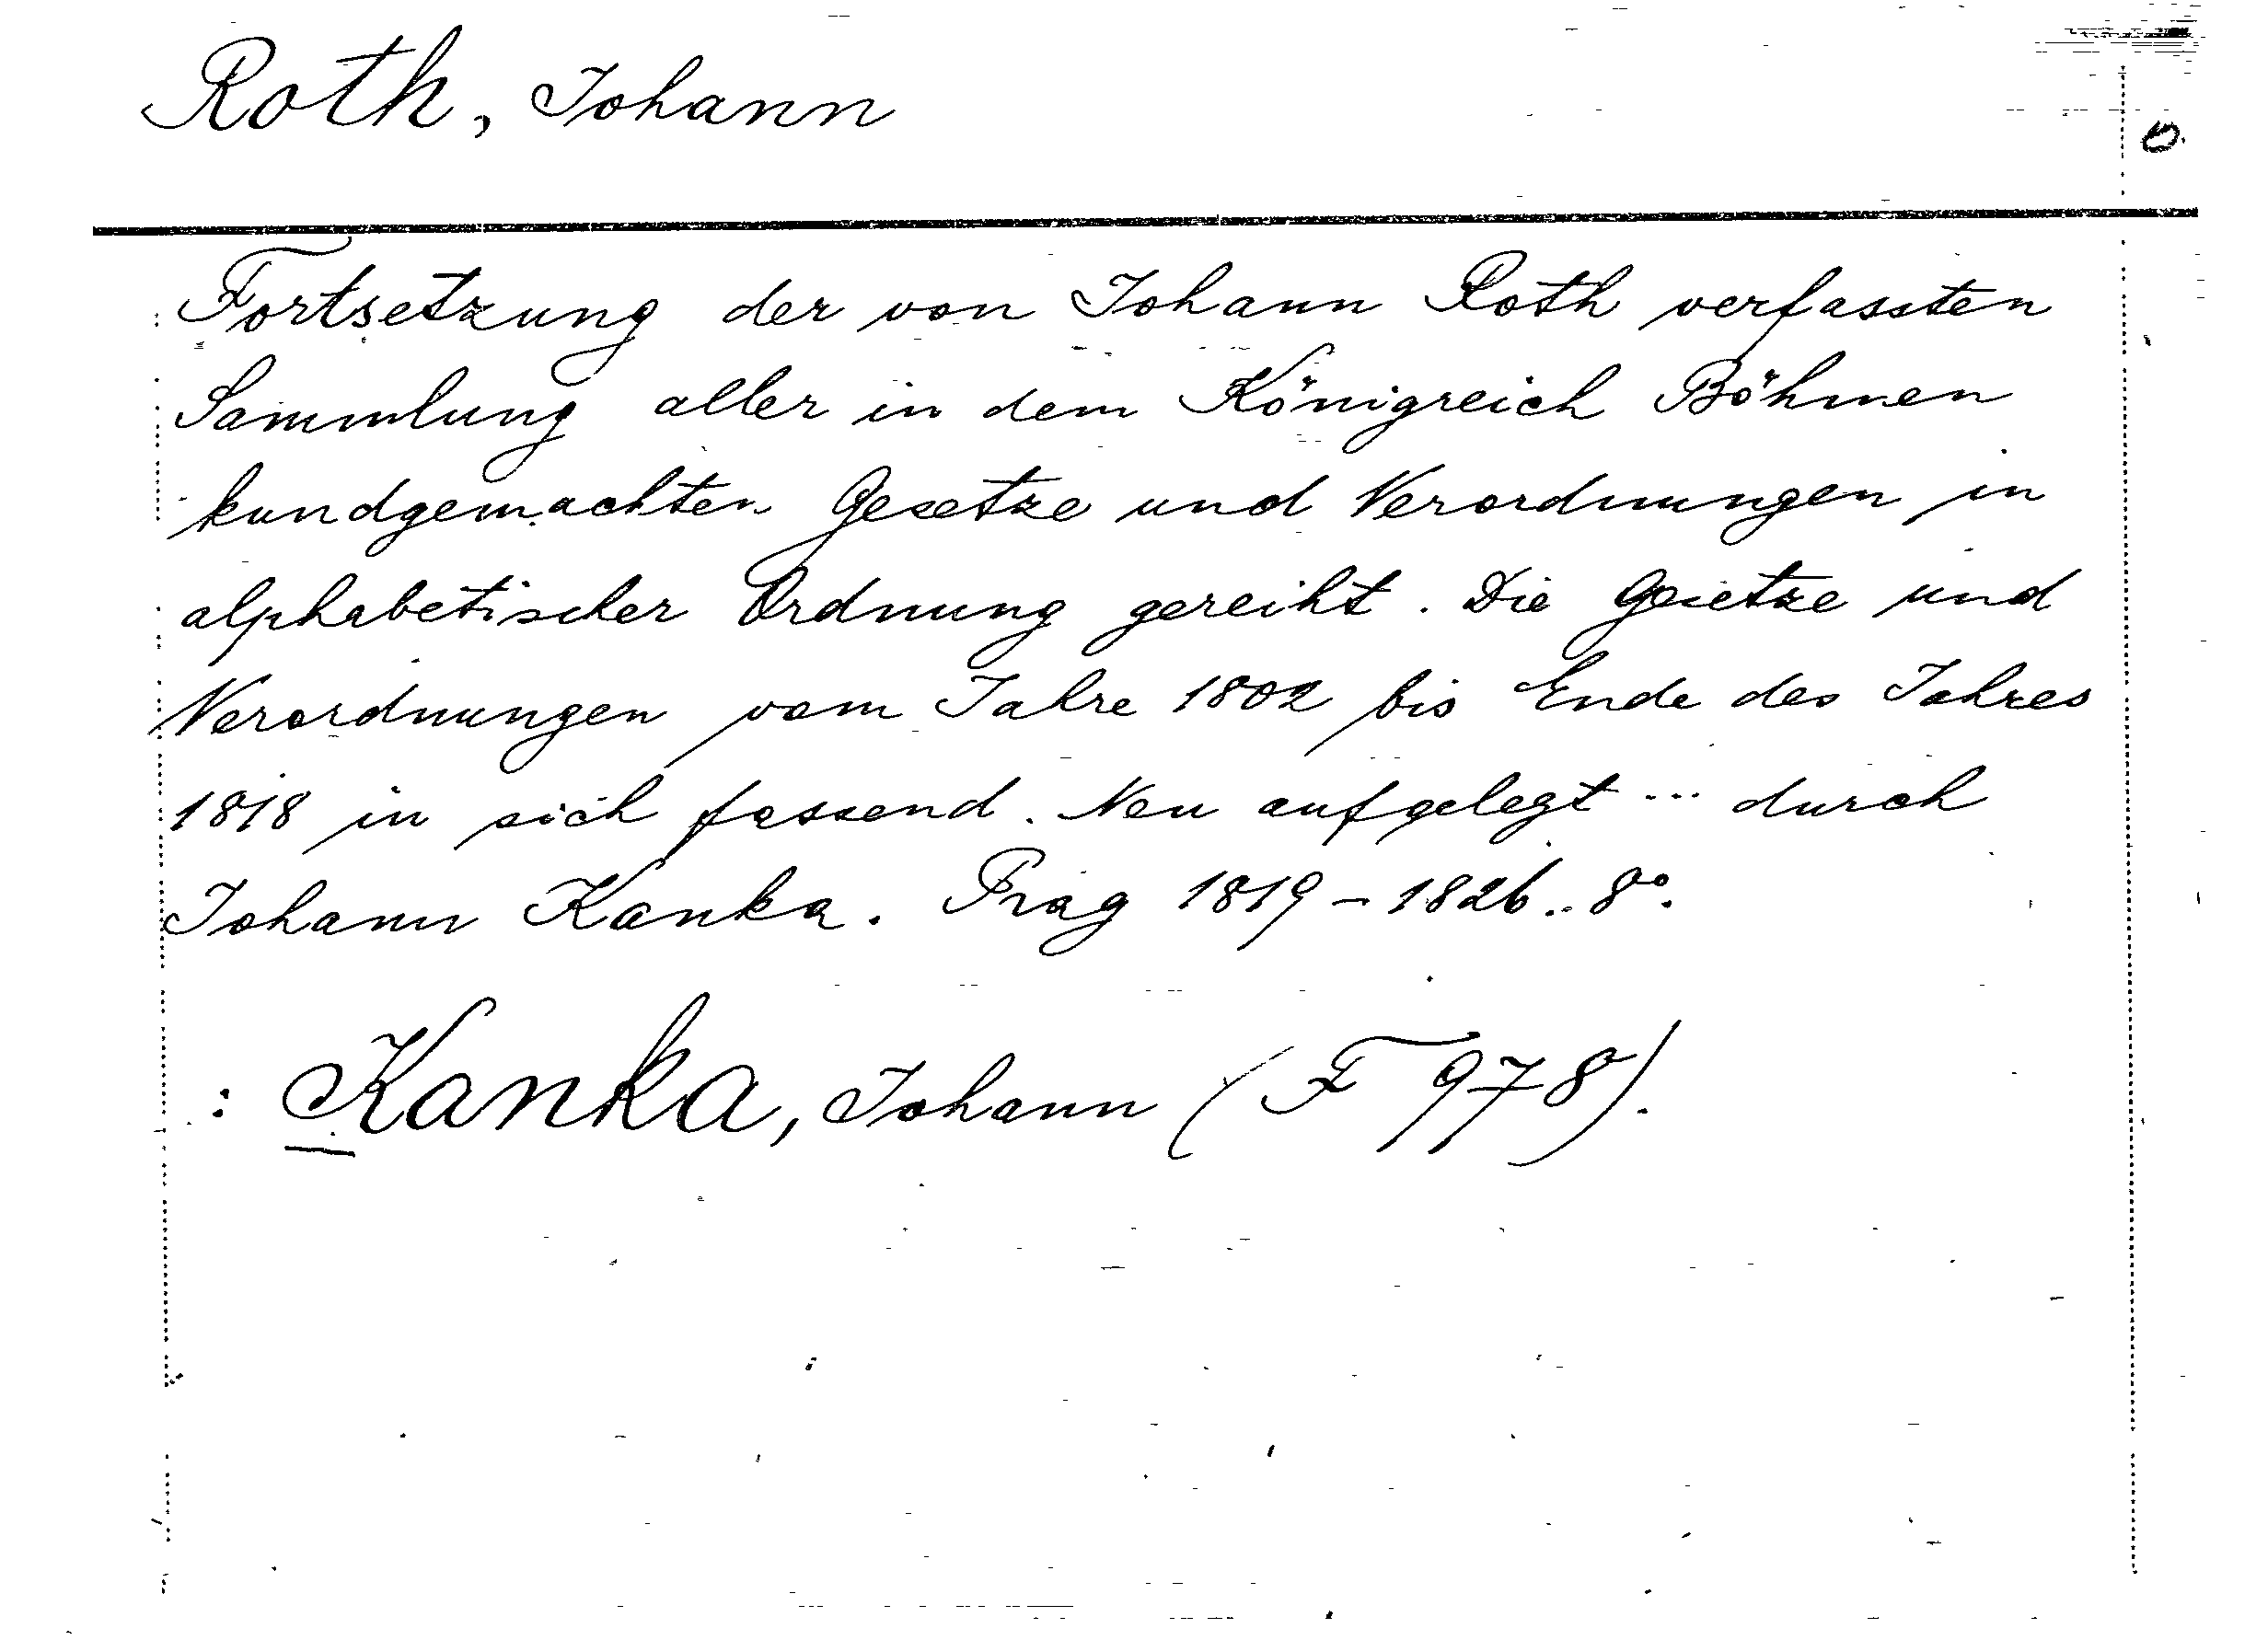 Roth, Johann
Fortsetzung der von Johann Roth verfassten
Sammlung aller in dem Königreich Böhmen
kundgemachten Gesetze und Verordnungen in
alphabetischer Ordnung gereiht. Die Gesetze und
Verordnungen vom Jahre 1802 bis Ende des Jahres
1818 in sich fassend. Neu aufgelegt ... durch
Johann Kanka. Prag 1819-1826.. 8°.
: Kanka, Johann (F 978).